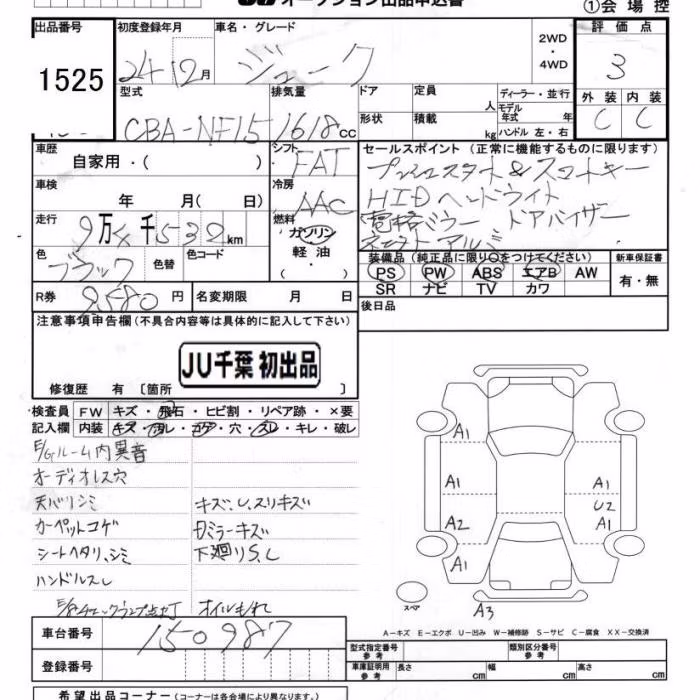 オークション出品申込書
①会場控
出品番号 初度登録年月 車名・グレード 評価点
1525 24 12月 ジューク 2WD・4WD 3
型式 排気量 ドア 定員 人 ディーラー・並行 外装 内装
CBA-NF15 1618cc 形状 積載 kg モデル年式 年 ハンドル 左・右 C C
車歴 自家用・( ) シフト FAT セールスポイント (正常に機能するものに限ります)
プッシュスタート&スマートキー
車検 年 月( 日) 冷房 AAC HIDヘッドライト
電格ミラー ドアバイザー
走行 9万 千532km 燃料 ガソリン・軽油・( )
社外アルミ
色 ブラック 色替 色コード 装備品 (純正品に限り○をつけてください) 新車保証書
PS PW ABS エアB AW 有・無
SR ナビ TV カワ
R券 9580円 名変期限 月 日 後日品
注意事項申告欄 (不具合内容等は具体的に記入して下さい)
JU千葉 初出品
修復歴 有 [箇所 ]
検査員 FW キズ・飛石・ヒビ割・リペア跡・×要
記入欄 内装 キズ・ヨレ・コゲ・穴・スレ・キレ・破レ
E/Gルーム内異音
オーディオレス穴
天バリシミ キズ、U、スリキズ
カーペットコゲ Dミラーキズ
シートヘタリ、シミ 下廻りS.C
ハンドルスレ
E/Gチェックランプ点灯 オイルもれ
A1
A1 A1
U2
A2 A1
A1
スペア A3
A-キズ E-エクボ U-凹み W-補修跡 S-サビ C-腐食 XX-交換済
車台番号 150987 型式指定番号 参考 類別区分番号 参考
登録番号 車庫証明用 参考 長さ cm 幅 cm 高さ cm
希望出品コーナー (コーナーは各会場により異なります。)